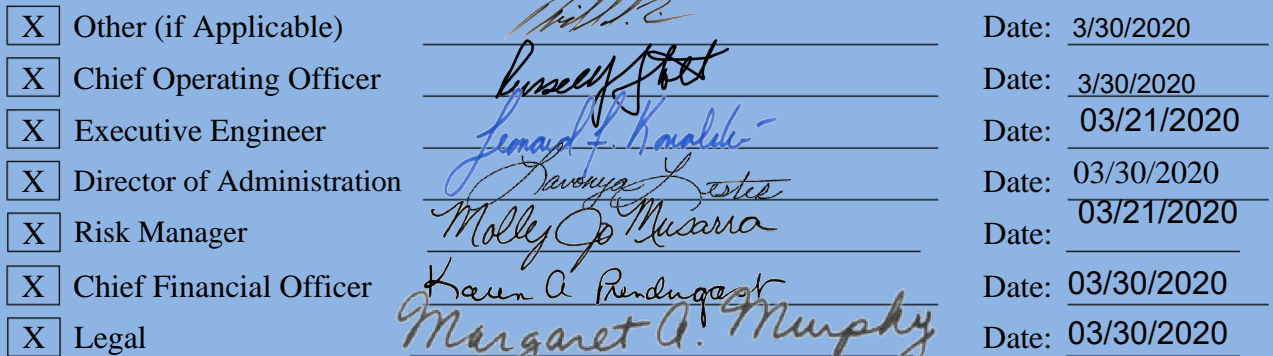 X Other (if Applicable) Date: 3/30/2020
X Chief Operating Officer Russell Stolt Date: 3/30/2020
X Executive Engineer Leonard F. Kowalski Date: 03/21/2020
X Director of Administration Lavonya Lester Date: 03/30/2020
X Risk Manager Molly Jo Musarra Date: 03/21/2020
X Chief Financial Officer Karen A Prendergast Date: 03/30/2020
X Legal Margaret A. Murphy Date: 03/30/2020